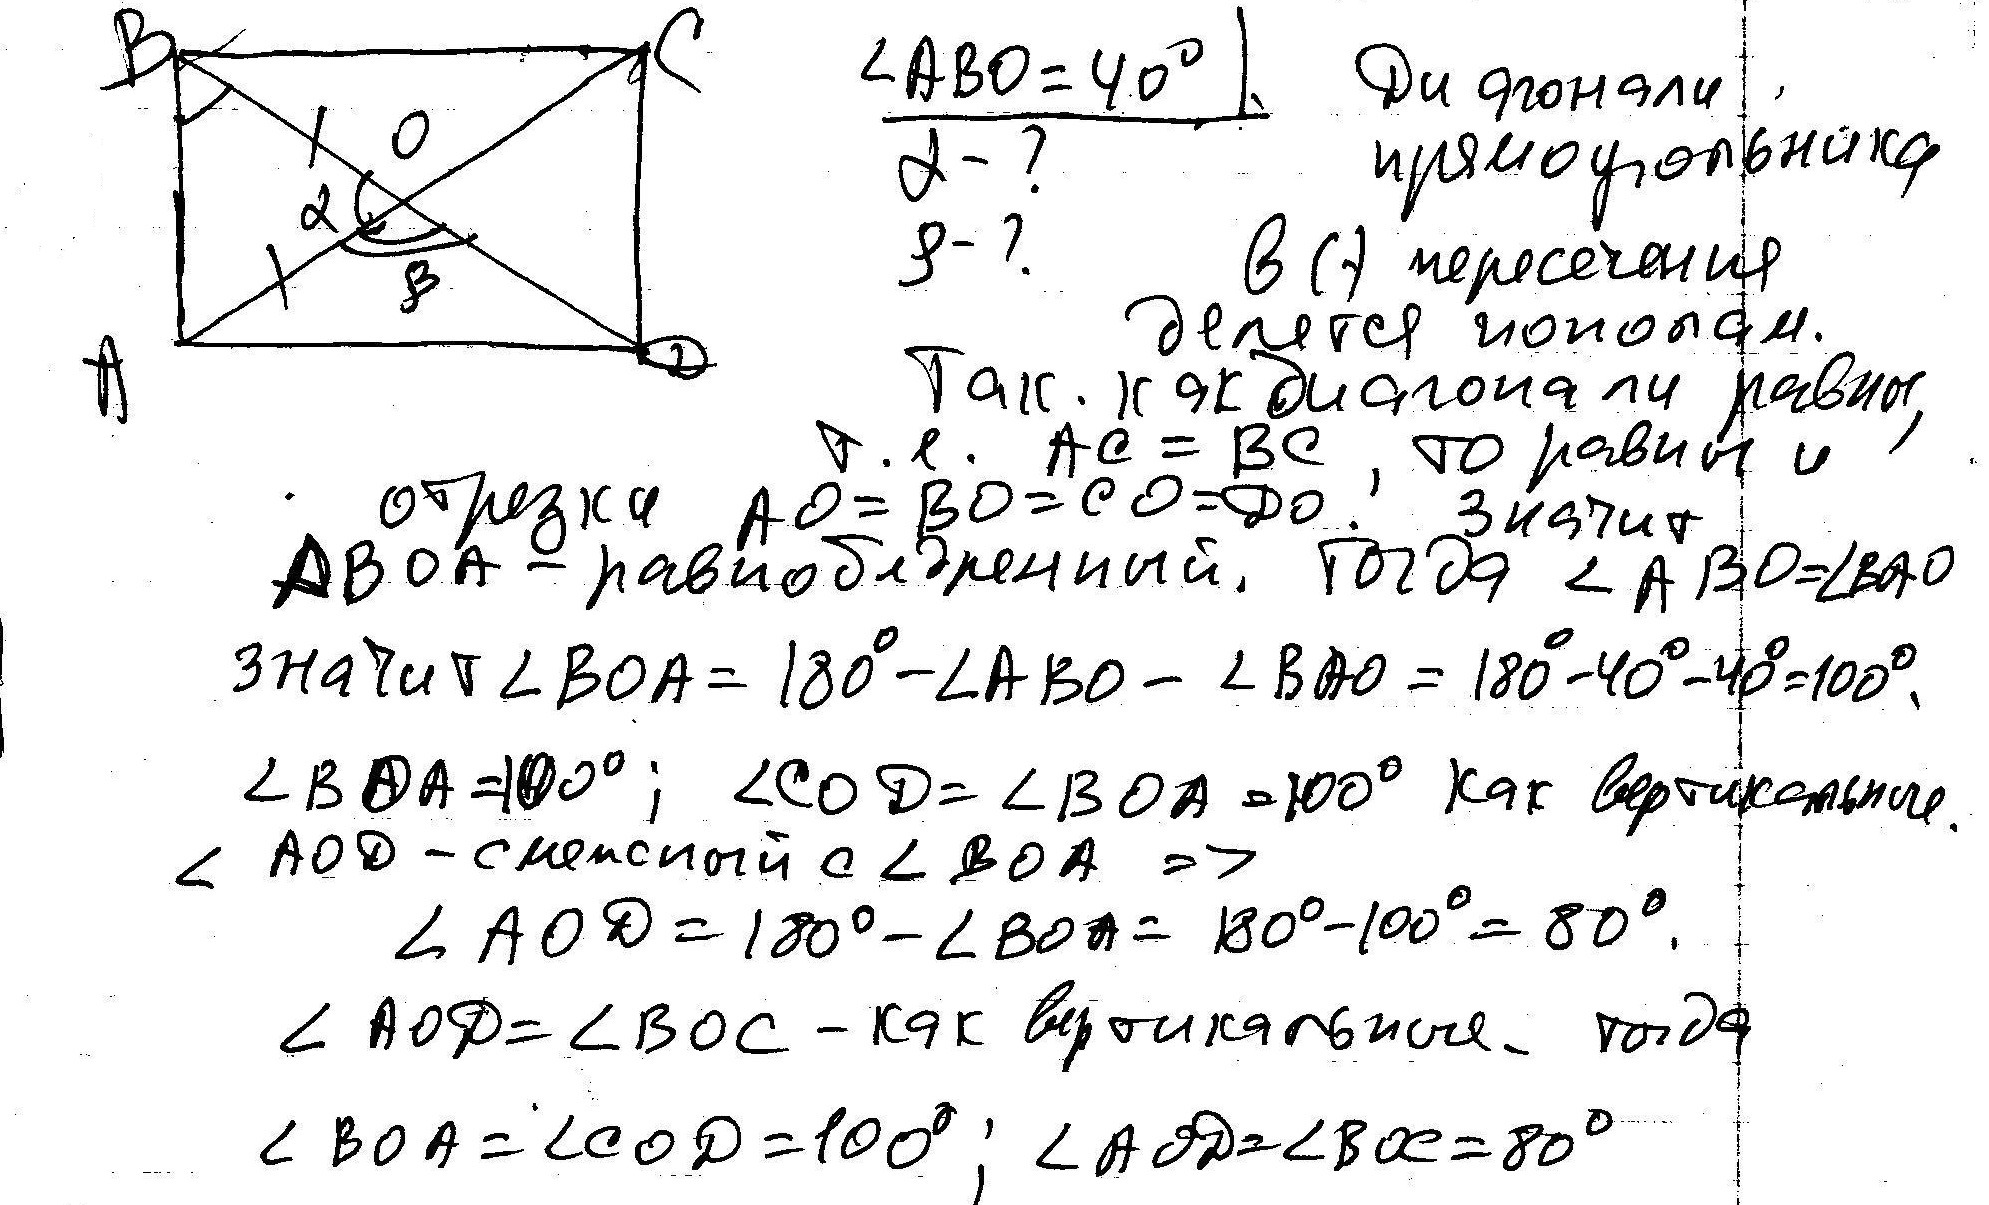 B C
∠ABO=40°
Диагонали
O
α-?
прямоугольника
α
β-?
в (·) пересечения
β
делятся пополам.
A D
Так. как диагонали равны,
т.е. AC = BC, то равны и
отрезки AO=BO=CO=DO. Значит
△BOA - равнобедренный. Тогда ∠ABO=∠BAO
значит ∠BOA = 180°-∠ABO - ∠BAO = 180°-40°-40°=100°.
∠BOA=100°; ∠COD=∠BOA=100° как вертикальные.
∠AOD - смежный с ∠BOA =>
∠AOD=180°-∠BOA= 180°-100°=80°.
∠AOD=∠BOC - как вертикальные. тогда
∠BOA=∠COD=100°; ∠AOD=∠BOC=80°